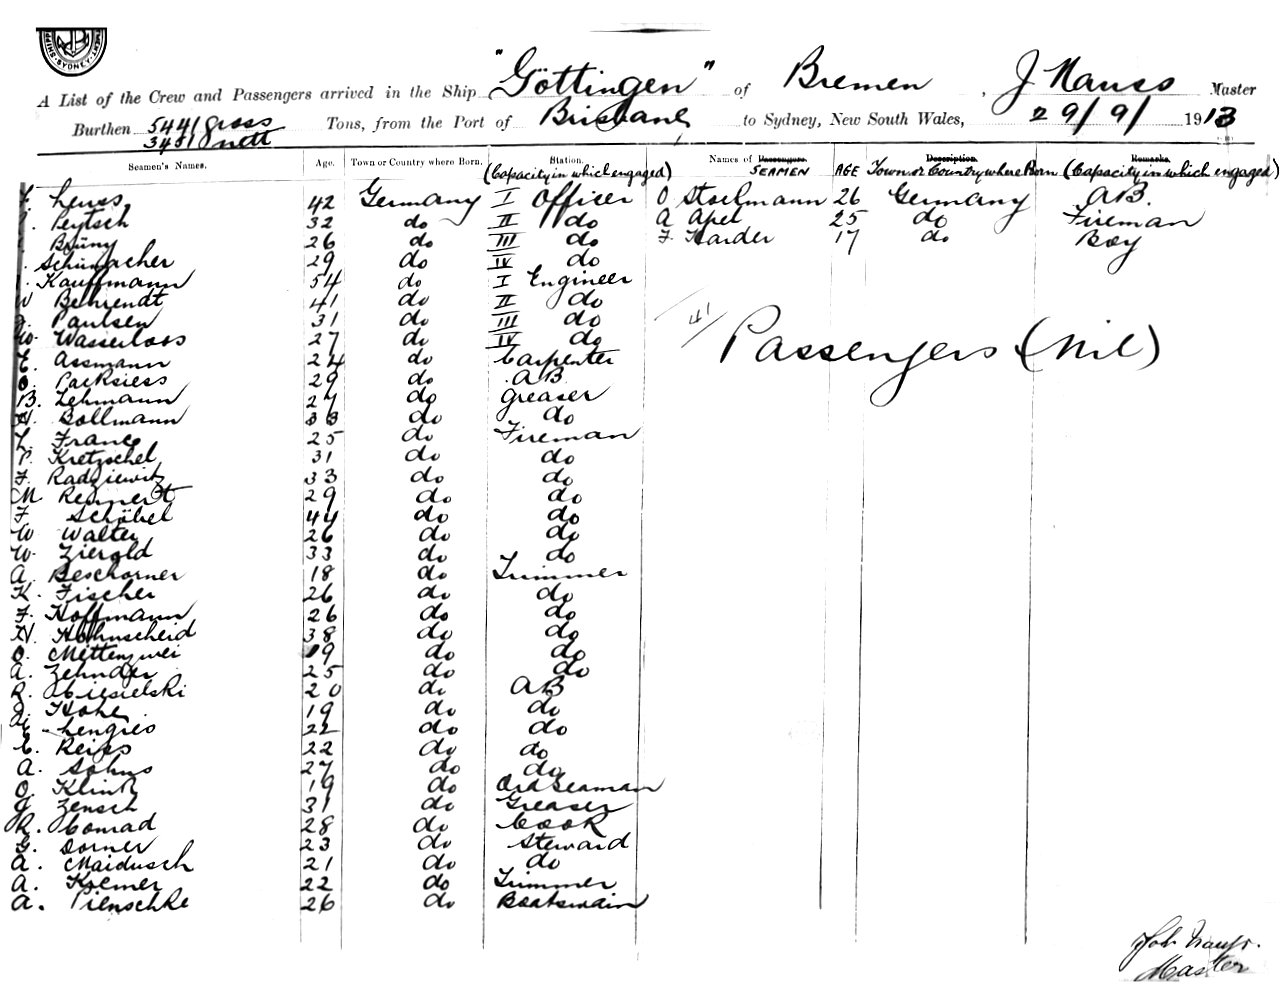 "Göttingen" of Bremen, J Mauss Master
A List of the Crew and Passengers arrived in the Ship
Burthen 5441 gross Tons, from the Port of Brisbane to Sydney, New South Wales, 29/9/1913
3451 nett
Seamen's Names. Age. Town or Country where Born. Station. Names of Passengers. Description. Remarks.
(Capacity in which engaged) SEAMEN AGE Town or Country where Born (Capacity in which engaged)
Leuss 42 Germany I Officer O Stoelmann 26 Germany AB.
Peytsch 32 do II do A Apel 25 do Fireman
Brüny 26 do III do F. Harder 17 do Boy
Schümacher 29 do IV do
Kauffmann 54 do I Engineer
W Behrendt 41 do II do
Paulsen 31 do III do
W. Wasserloos 27 do IV do
E. Assmann 24 do Carpenter
O. Parksiess 29 do AB
B. Lehmann 27 do Greaser
H. Bollmann 33 do do
L. Franc 25 do Fireman
P. Kretzschel 31 do do
F. Radziewitz 33 do do
M Reinert 29 do do
F Schöbel 44 do do
W Walter 26 do do
W. Zierold 33 do do
A. Beschorner 18 do Trimmer
K. Fischer 26 do do
F. Hoffmann 26 do do
H. Hohnscheid 38 do do
O. Mettenzwei 19 do do
A. Zehnder 25 do do
R. Ciesielski 20 do AB
Hohe 19 do do
Lengies 22 do do
E. Reiss 22 do do
A. Sohns 27 do do
O. Klink 19 do Ord Seaman
J Zensch 31 do Greaser
R. Conrad 28 do Cook
G. Dorner 23 do Steward
A. Maidusch 21 do do
A. Kremer 22 do Trimmer
A. Pienschke 26 do Boatswain
41/
Passengers (Nil)
Joh Mauss.
Master